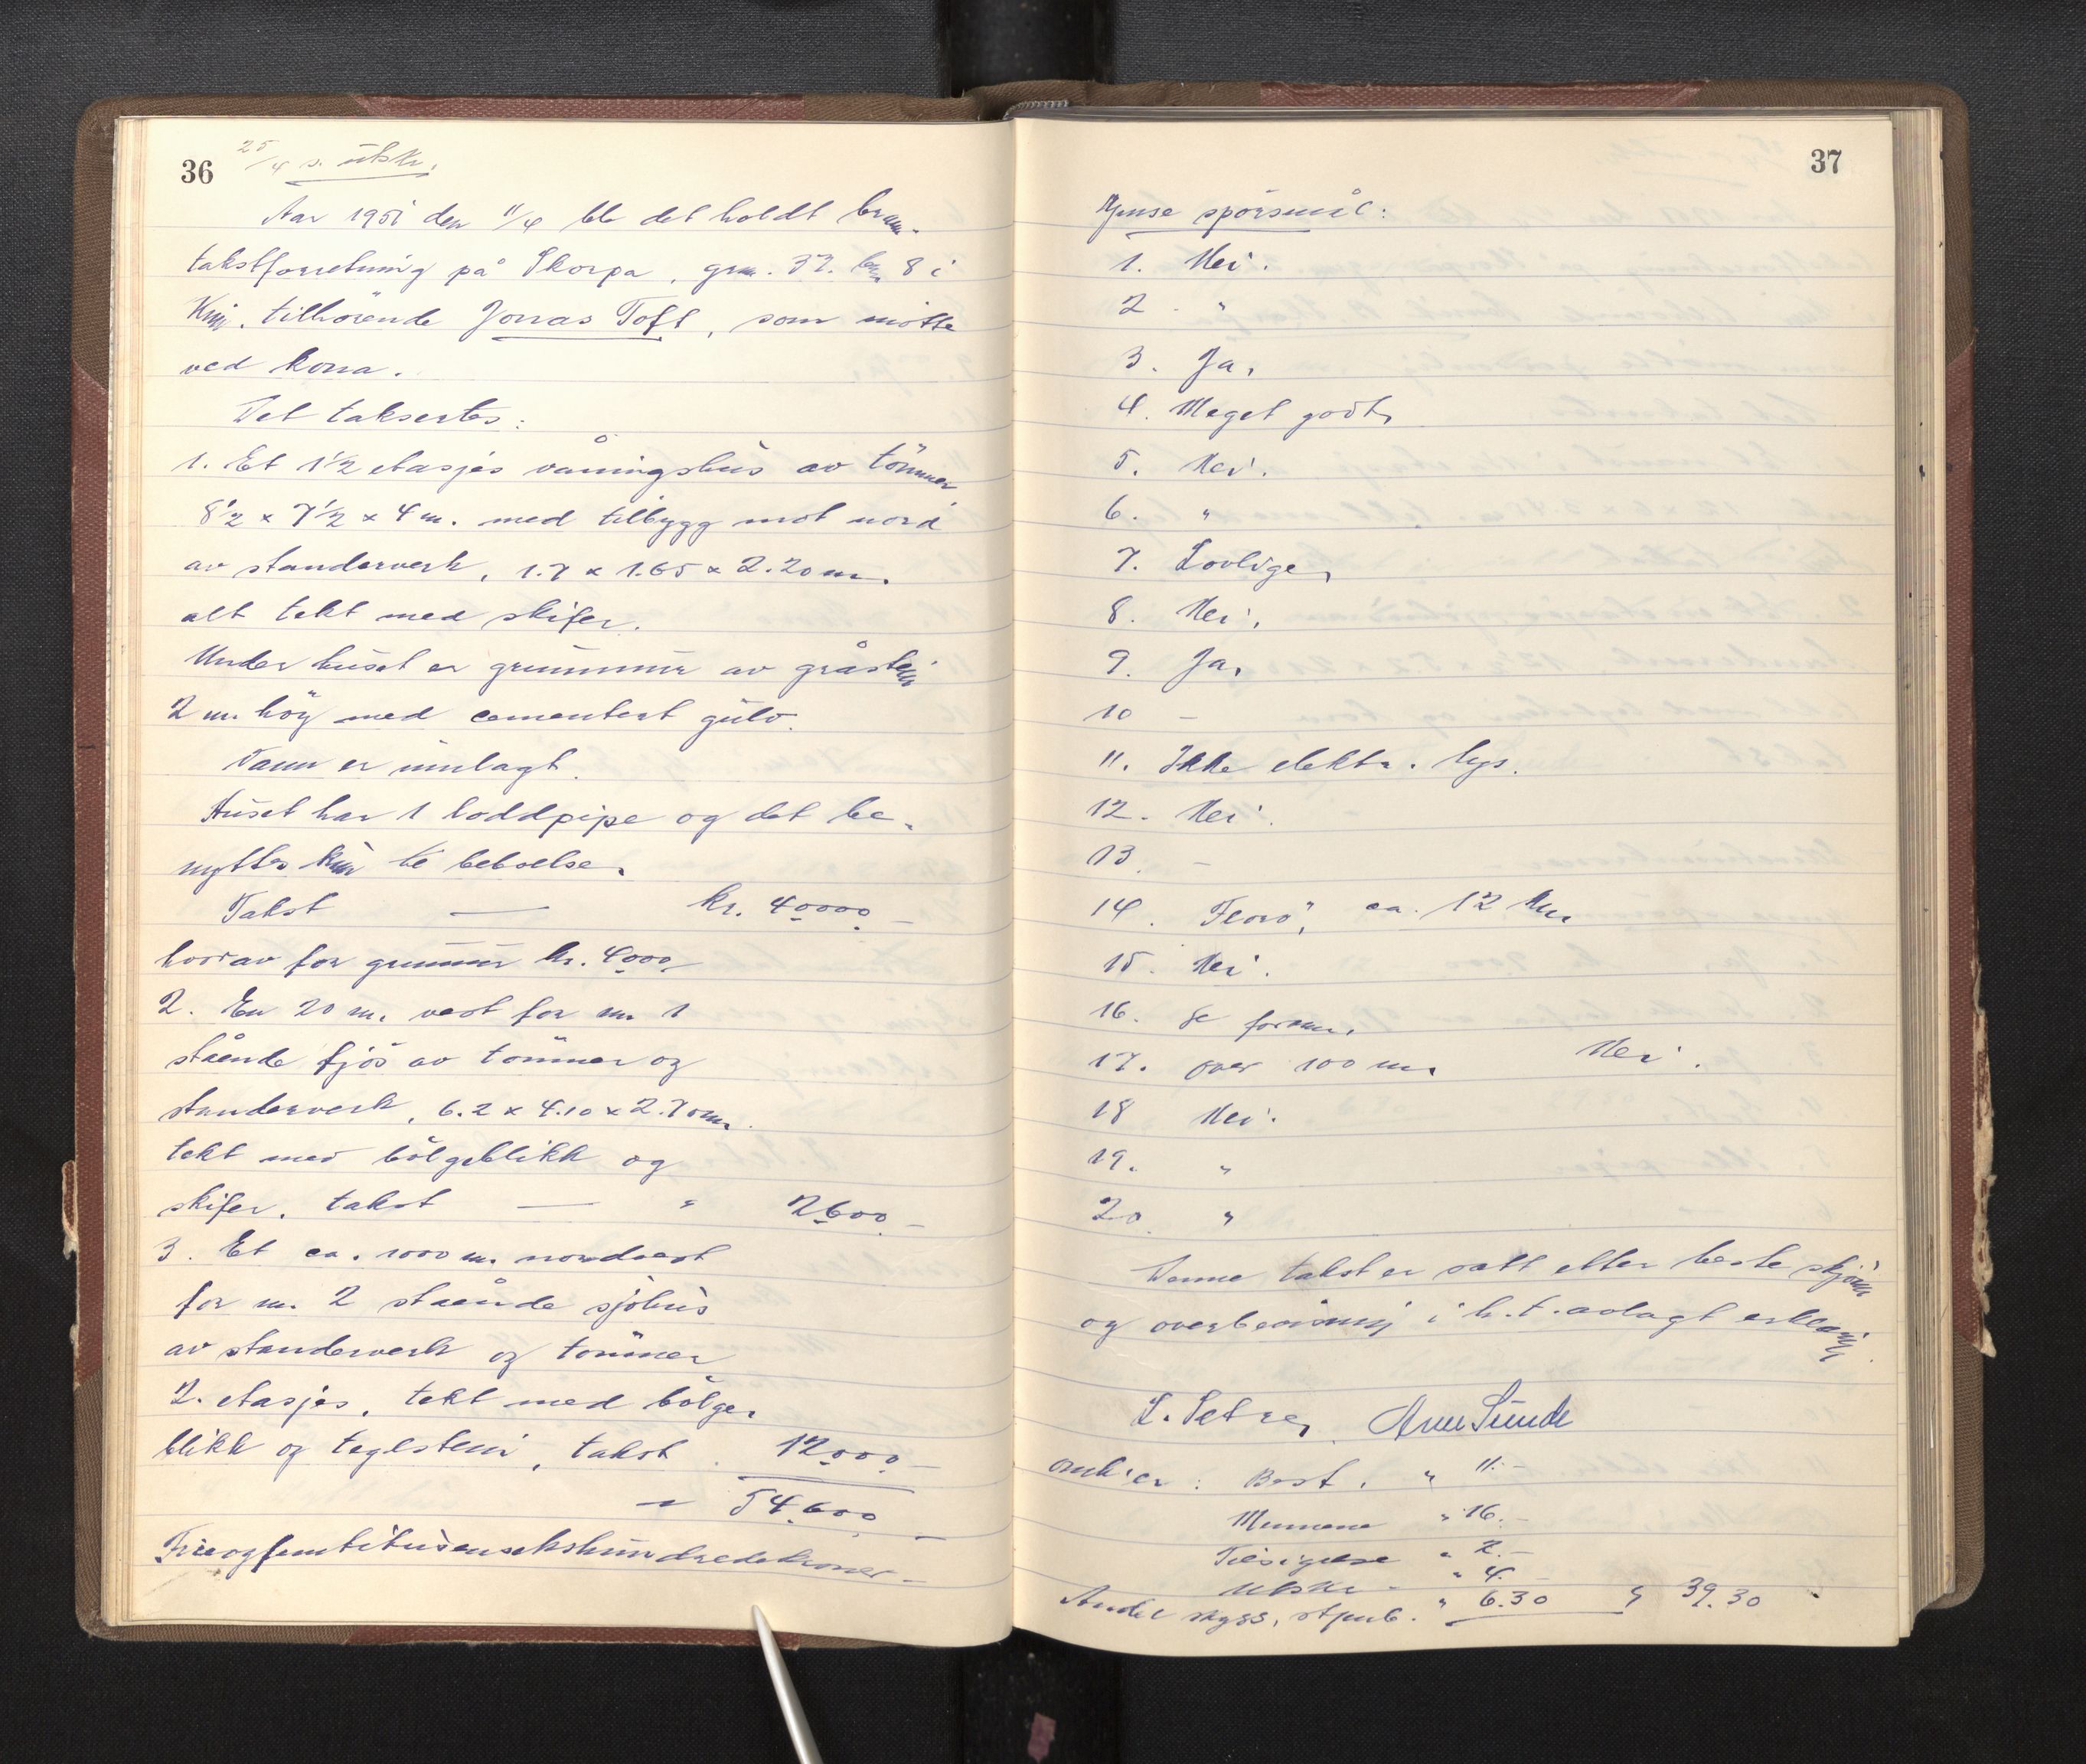 36
25/4 s. utskr.
Aar 1951 den 11/4 ble det holdt brann-
takstforretning på Skorpa, grn. 37. brn 8 i
Kinn. tilhörende Jonas Toft, som møtte
ved kona.
Det taksertes:
1. Et 1 1/2 etasjes våningshus av tömmer
8 1/2 x 7 1/2 x 4 m. med tilbygg mot nord
av standerverk, 1.7 x 1.65 x 2.20 m.
alt tekt med skifer.
Under huset er grunnmur av gråstein
2 m. höy med cementert gulv.
Vann er innlagt.
Huset har 1 loddpipe og det be-
nyttes kun til beboelse.
Takst — kr. 40000 –
hvorav for grunnmur kr. 4000
2. En 20 m. vest for nr. 1
stående fjös av tömmer og
standerverk, 6.2 x 4.10 x 2.70 m.
tekt med bölgeblikk og
skifer. takst — " 2600 –
3. Et ca. 1000 m. nordvest
for nr. 2 stående sjöhus
av standerverk og tömmer
2. etasjes, tekt med bölge-
blikk og teglstein, takst 12000 –
54.600 –
Fireogfemtitusensekshundredekroner –
37
Ymse spörsmål:
1. Nei.
2. "
3. Ja.
4. Meget godt.
5. Nei.
6. "
7. Lovlige.
8. Nei.
9. Ja.
10 –
11. Ikke elektr. lys.
12. Nei.
13. –
14. Florö, ca. 12 km
15. Nei.
16. Se foran.
17. over 100 m. Nei.
18 Nei.
19. "
20 "
Denne takst er satt etter beste skjönn
og overbevisning i h.t. avlagt erklæring.
L. Setre, Arne Sunde
omk.er: Best. " 11.–
Mennene " 16.–
Tilsigelse " 2.–
Utskr. " 4.–
Andel skyss, stpub. " 6.30 39.30